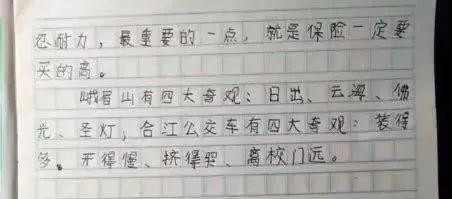 忍耐力，最重要的一点，就是保险一定要
买的高。
峨眉山有四大奇观：日出、云海、佛
光、圣灯，合江公交车有四大奇观：装得
多。开得慢、挤得哭、离校门远。